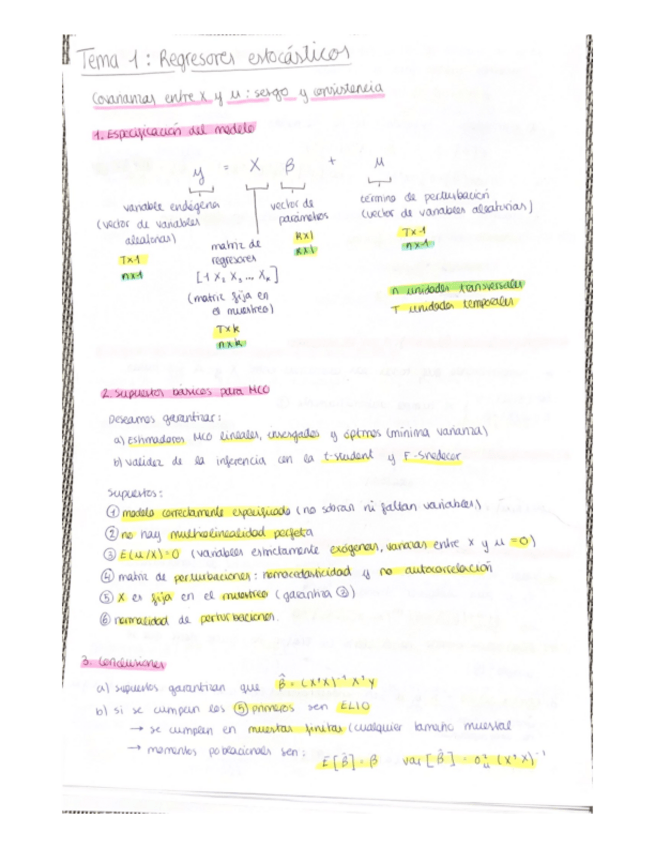 Tema 1: Regresores estocásticos
Covarianzas entre X y u: sesgo y consistencia
1. Especificación del modelo
y = X β + u
variable endógena
(vector de variables
aleatorias)
Tx1
nx1
matriz de
regresores
[1 X₂ X₃ ... Xk]
(matriz fija en
el muestreo)
Txk
nxk
vector de
parámetros
kx1
kx1
término de perturbación
(vector de variables aleatorias)
Tx1
nx1
n unidades transversales
T unidades temporales
2. Supuestos básicos para MCO
Deseamos garantizar:
a) Estimadores MCO lineales, insesgados y óptimos (mínima varianza)
b) validez de la inferencia con la t-student y F-Snedecor
Supuestos:
① modelo correctamente especificado (no sobran ni faltan variables)
② no hay multicolinealidad perfecta
③ E(u/x)=0 (variables estrictamente exógenas, varianzas entre x y u = 0)
④ matriz de perturbaciones: homocedasticidad y no autocorrelación
⑤ X es fija en el muestreo (garantiza ③)
⑥ normalidad de perturbaciones
3. Conclusiones
a) supuestos garantizan que β̂ = (X'X)⁻¹ X'Y
b) si se cumplen los ⑤ primeros son ELIO
→ se cumplen en muestras finitas (cualquier tamaño muestral
→ momentos poblacionales son: E[β̂] = β var[β̂] = σ²u (X'X)⁻¹